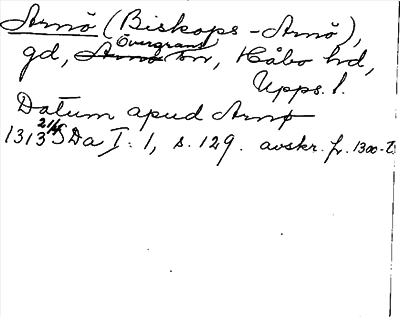 Arnö (Biskops-Arnö),
Övergrans
gd, Arnö sn, Håbo hd,
Upps. l.
Datum apud Arnø
1313 21/4 SDa I: 1, s. 129. avskr. fr. 1300-t.